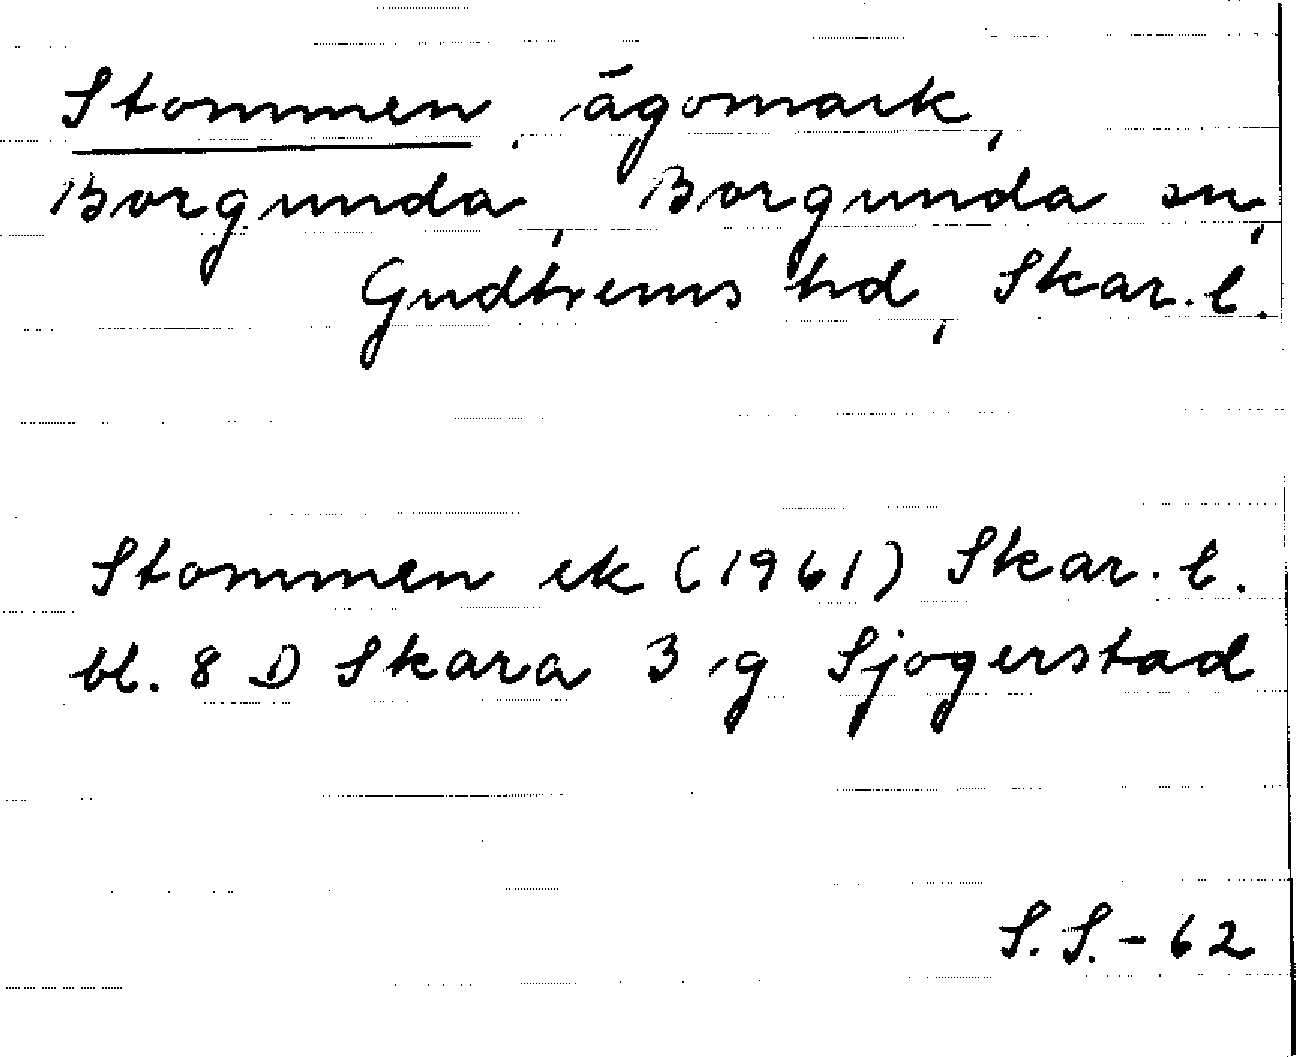 Stommen, ägomark,
Borgunda, Borgunda sn,
Gudhems hd, Skar. l.
Stommen ek (1961) Skar. l.
bl. 8 D Skara 3 g Sjogerstad
S.S.-62